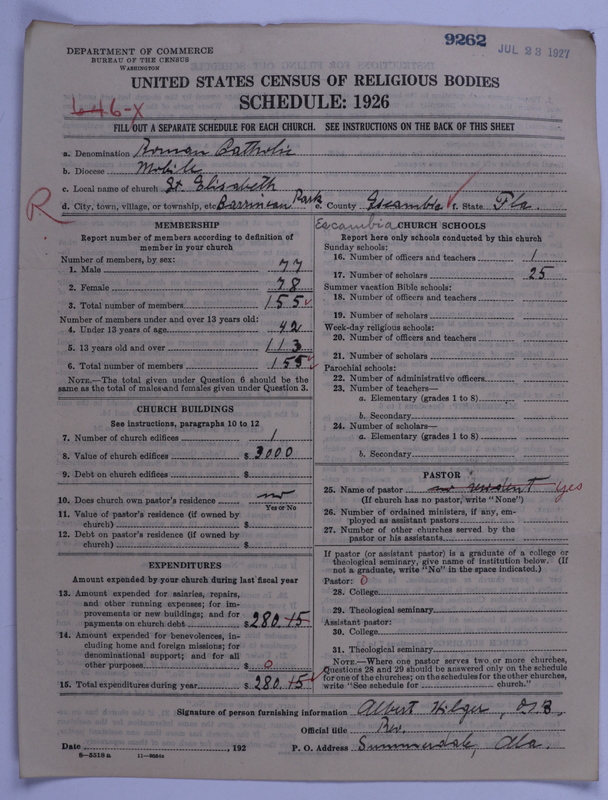 9262
JUL 23 1927
DEPARTMENT OF COMMERCE
BUREAU OF THE CENSUS
WASHINGTON
UNITED STATES CENSUS OF RELIGIOUS BODIES
SCHEDULE: 1926
646-X
FILL OUT A SEPARATE SCHEDULE FOR EACH CHURCH. SEE INSTRUCTIONS ON THE BACK OF THIS SHEET
a. Denomination Roman Catholic
b. Diocese Mobile
c. Local name of church St. Elisabeth
R
d. City, town, village, or township, etc. Barrineau Park e. County Escambia f. State Fla.
MEMBERSHIP
Report number of members according to definition of
member in your church
Number of members, by sex:
1. Male 77
2. Female 78
3. Total number of members 155
Number of members under and over 13 years old:
4. Under 13 years of age 42
5. 13 years old and over 113
6. Total number of members 155
NOTE.—The total given under Question 6 should be the
same as the total of males and females given under Question 3.
CHURCH BUILDINGS
See instructions, paragraphs 10 to 12
7. Number of church edifices 1
8. Value of church edifices $ 3000
9. Debt on church edifices $
10. Does church own pastor's residence no
Yes or No
11. Value of pastor's residence (if owned by
church) $
12. Debt on pastor's residence (if owned by
church) $
EXPENDITURES
Amount expended by your church during last fiscal year
13. Amount expended for salaries, repairs,
and other running expenses; for im-
provements or new buildings; and for
payments on church debt $ 280.15
14. Amount expended for benevolences, in-
cluding home and foreign missions; for
denominational support; and for all
other purposes $ 0
15. Total expenditures during year $ 280.15
Escambia
CHURCH SCHOOLS
Report here only schools conducted by this church
Sunday schools:
16. Number of officers and teachers 1
17. Number of scholars 25
Summer vacation Bible schools:
18. Number of officers and teachers
19. Number of scholars
Week-day religious schools:
20. Number of officers and teachers
21. Number of scholars
Parochial schools:
22. Number of administrative officers
23. Number of teachers—
a. Elementary (grades 1 to 8)
b. Secondary
24. Number of scholars—
a. Elementary (grades 1 to 8)
b. Secondary
PASTOR
25. Name of pastor no resident yes
(If church has no pastor, write "None")
26. Number of ordained ministers, if any, em-
ployed as assistant pastors
27. Number of other churches served by the
pastor or his assistants
If pastor (or assistant pastor) is a graduate of a college or
theological seminary, give name of institution below. (If
not a graduate, write "No" in the space indicated.)
Pastor: 0
28. College
29. Theological seminary
Assistant pastor:
30. College
31. Theological seminary
NOTE.—Where one pastor serves two or more churches,
Questions 28 and 29 should be answered only on the schedule
for one of the churches; on the schedules for the other churches,
write "See schedule for church."
Signature of person furnishing information Albert Hilger, O.S.B.
Official title Rev.
Date , 192 P. O. Address Summerdale, Ala.
8-5518a 11-9684a